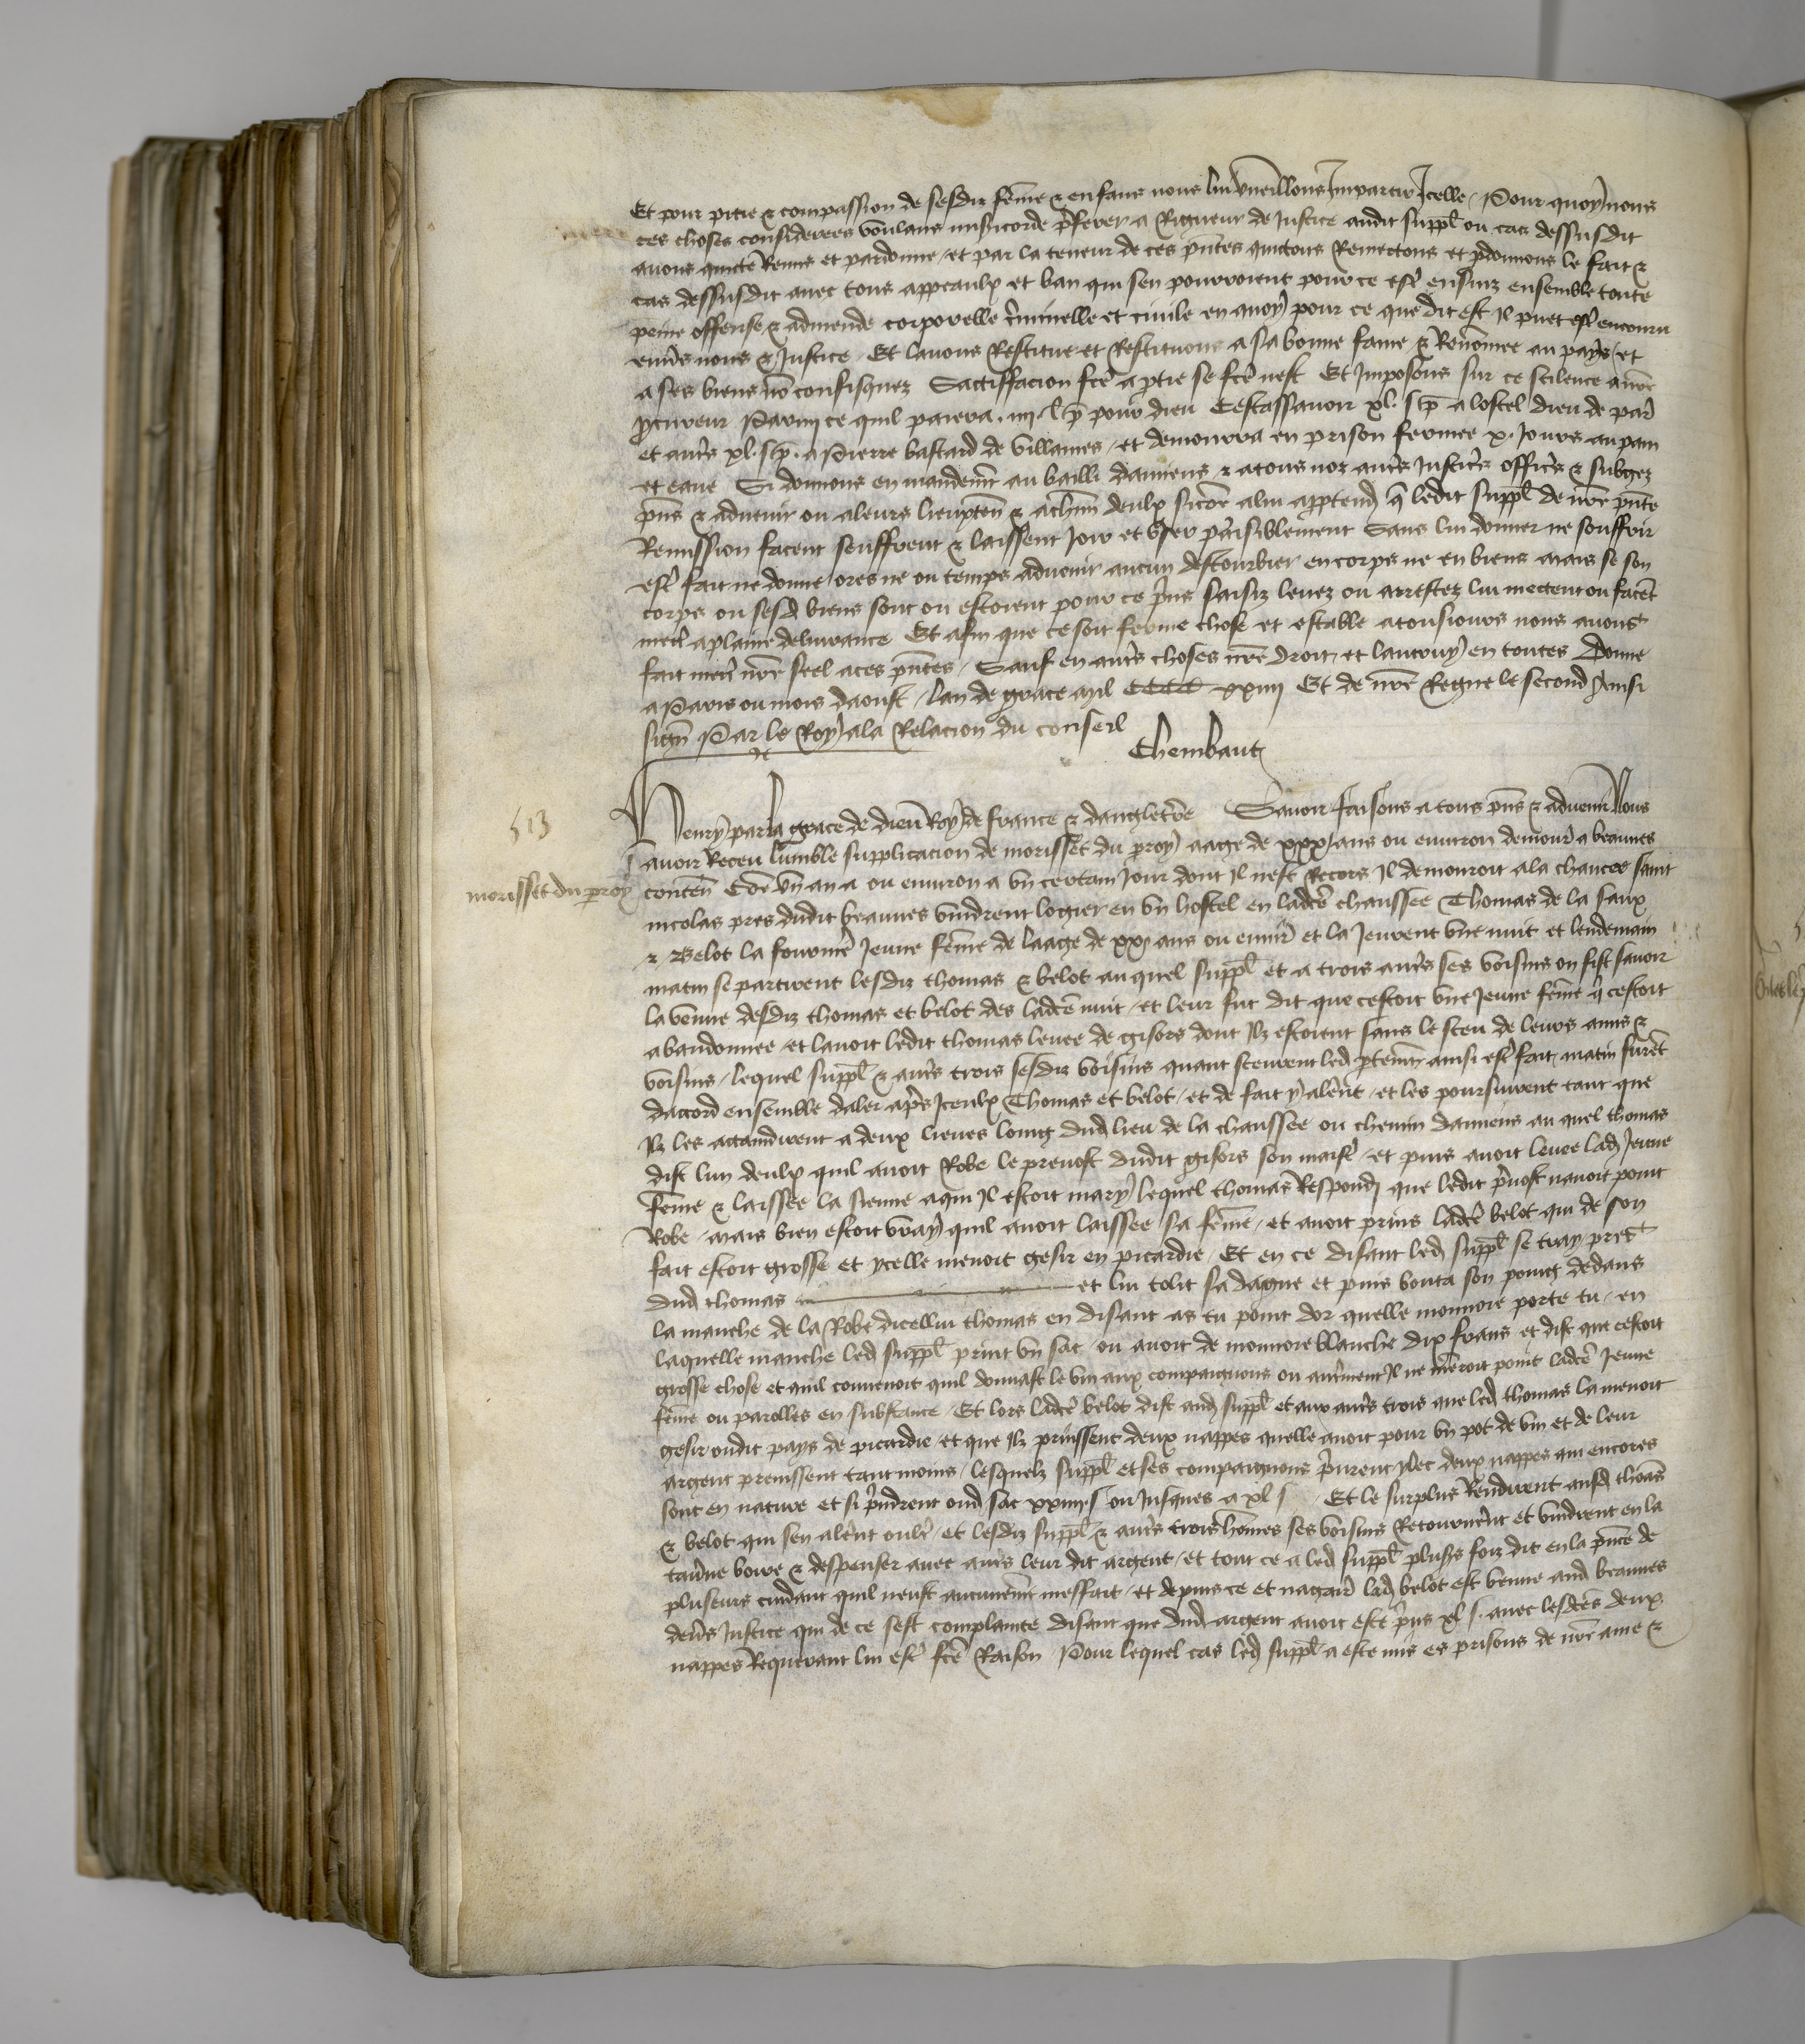 Et pour pitie & compassion de sesdiz fem̄e & enfans nous lui vueillons Impartir Icelle / Pour quoy nous
ces choses considerees voulans mis̾icorde p̾ferer a Rigueur de Justice audit suppl̄ ou cas dessusdit
auons quicte Remis et pardonne / et par la teneur de ces pn̄tes quictons Remectons et p̱donnons le fait &
cas dessusdit auec tous appeaulx et ban qui sen pourroient pour ce est̾ ensuiz ensemble toute
peine offense & admende corporelle c̾iminelle et ciuile en quoy pour ce que dit est Il puet est̾ encouru
enu̾s nous & Justice / Et lauons Restitue et Restituons a sa bonne fame & Renom̄ee au pays / et
a ses biens nō confisquez Satiffacion fc̄e a ptie se fc̄e nest Et Imposons sur ce scilence a nr̄e
ꝓcureur Parmy ce quil paiera . iiij . l̄ p̄ pour dieu Cestassauoir xl . s p̄ a lostel dieu de par̾
et aut̾s xl . s p̄ . a Pierre bastard de villaines / et demourra en prison fermee x . Jours au pain
et eaue Si donnons en mandem̄t au bailli damiens & a tous noz aut̾s Justic̾s offic̾s & subgez
p̾ns & aduenir ou a leurs lieuxten̄ & a ch̄un deulx si cōe a lui app̱tend̾ q̄ ledit suppl̄ de nr̄e pn̄te
Remission facent seuffrent & laissent Joir et vser paisiblement Sans lui donner ne souffrir
est̾ fait ne donne ores ne ou temps aduenir aucun destourbier en corps ne en biens mais se son
corps ou sesd̾ biens sont ou estoient pour ce p̾ns saisiz leuez ou arrestez lui mectent ou facēt
mect̾ a plaine deliurance Et afin que ce soit ferme chose et estable a tousiours nous auons
fait mect̾ nr̄e seel a ces pn̄tes / Sauf en aut̾s choses nr̄e droit / et lautruy en toutes Donne
a Paris ou mois daoust / lan de grace mil CCCC xxiiij Et de nr̄e Regne le second Ainsi
sign̄ Par le Roy a la Relacion du conseil
Chembaut
513
Henry par la grace de dieu Roy de france & dangleterre Sauoir faisons a tous pn̄s & aduenir Nous
auoir Receu lumble supplicacion de morisset du proy aage de xxx ans ou enuiron demour̾ a beaunes
morisset du proy
conten̄ Cōe vn an a ou enuiron a vn certain Jour dont Il nest Recors Il demouroit a la chaucee saint
nicolas pres dudit beaunes vindrent logier en vn hostel en ladc̄e chaussee Thomas de la saux
& Belot la fourniē Jeune fem̄e de laage de xx ans ou enuir̾ et la Jeurent vne nuit et lendemain
matin se partirent lesdiz thomas & belot au quel suppl̄ et a trois aut̾s ses voisins on fist sauoir
la venue desdiz thomas et belot des ladc̄e nuit / et leur fut dit que cestoit vne Jeune fem̄e q̄ cestoit
abandonnee / et lauoit ledit thomas leuee de gisors dont Ilz estoient sans le sceu de leurs amis &
voisins / lequel suppl̄ & aut̾s trois sesdiz voisins quant sceurent led̾ ptem̄t ainsi est̾ fait matin furēt
daccord ensemble daler ap̾s Iceulx Thomas et belot / et de fait y alerēt / et les poursuirent tant que
Ilz les actaindirent a deux lieues loing dud̾ lieu de la chaussee ou chemin damiens au quel thomas
dist lun deulx quil auoit Robe le preuost dudit gisors son maist̾ / et puis auoit leuee lad̾ Jeune
fem̄e & laissee la sienne a qui Il estoit mary lequel thomas Respond̾ que ledit p̾uost nauoit point
Robe / mais bien estoit vray quil auoit laissee sa fem̄e / et auoit prins ladc̄e belot qui de son
fait estoit grosse et ycelle menoit gesir en picardie / Et en ce disant led̾ suppl̄ se tray pres
dud̾ thomas et lui tolit sa dague et puis bouta son poing dedans
la manche de la Robe dicellui thomas en disant as tu point dor quelle monnoie porte tu / en
laquelle manche led̾ suppl̄ print vn sac / ou auoit de monnoie blanche dix frans et dist que cestoit
grosse chose et quil conuenoit quil donnast le vin aux compaignons ou autrement Il ne mēroit point ladc̄e Jeune
fem̄e ou parolles en substance / Et lors ladc̄e belot dist aud̾ suppl̄ et aux aut̾s trois que led̾ thomas la menoit
gesir oudit pays de picardie / et que Ilz prinssent deux nappes quelle auoit pour vn pot de vin et de leur
argent prenissent tant moins / lesquelz suppl̄ et ses compaignons p̾nrent Ilec deux nappes qui encores
sont en nature et si p̾ndrent oud̾ sac xxiiij . s ou Jusques a xl s / Et le surplus Rendirent ausd̾ thoās
& belot qui sen alerēt oult̾ / et lesdiz suppl̄ & aut̾s trois hōmes ses voisins Retournerēt et vindrent en la
tau̾ne boire & despenser auec aut̾s leur dit argent / et tout ce a led̾ suppl̄ plus̾s foiz dit en la pn̄ce de
pluseurs cuidant quil neust aucunem̄t meffait / et depuis ce et nagair̾ lad̾ belot est venue aud̾ beaunes
deu̾s Justice qui de ce sest complainte disant que dud̾ argent auoit este p̾ns xl s . auec lesdc̄es deux
nappes Requerant lui est̾ fc̄e Raison Pour lequel cas led̾ suppl̄ a este mis es prisons de nr̄e ame &